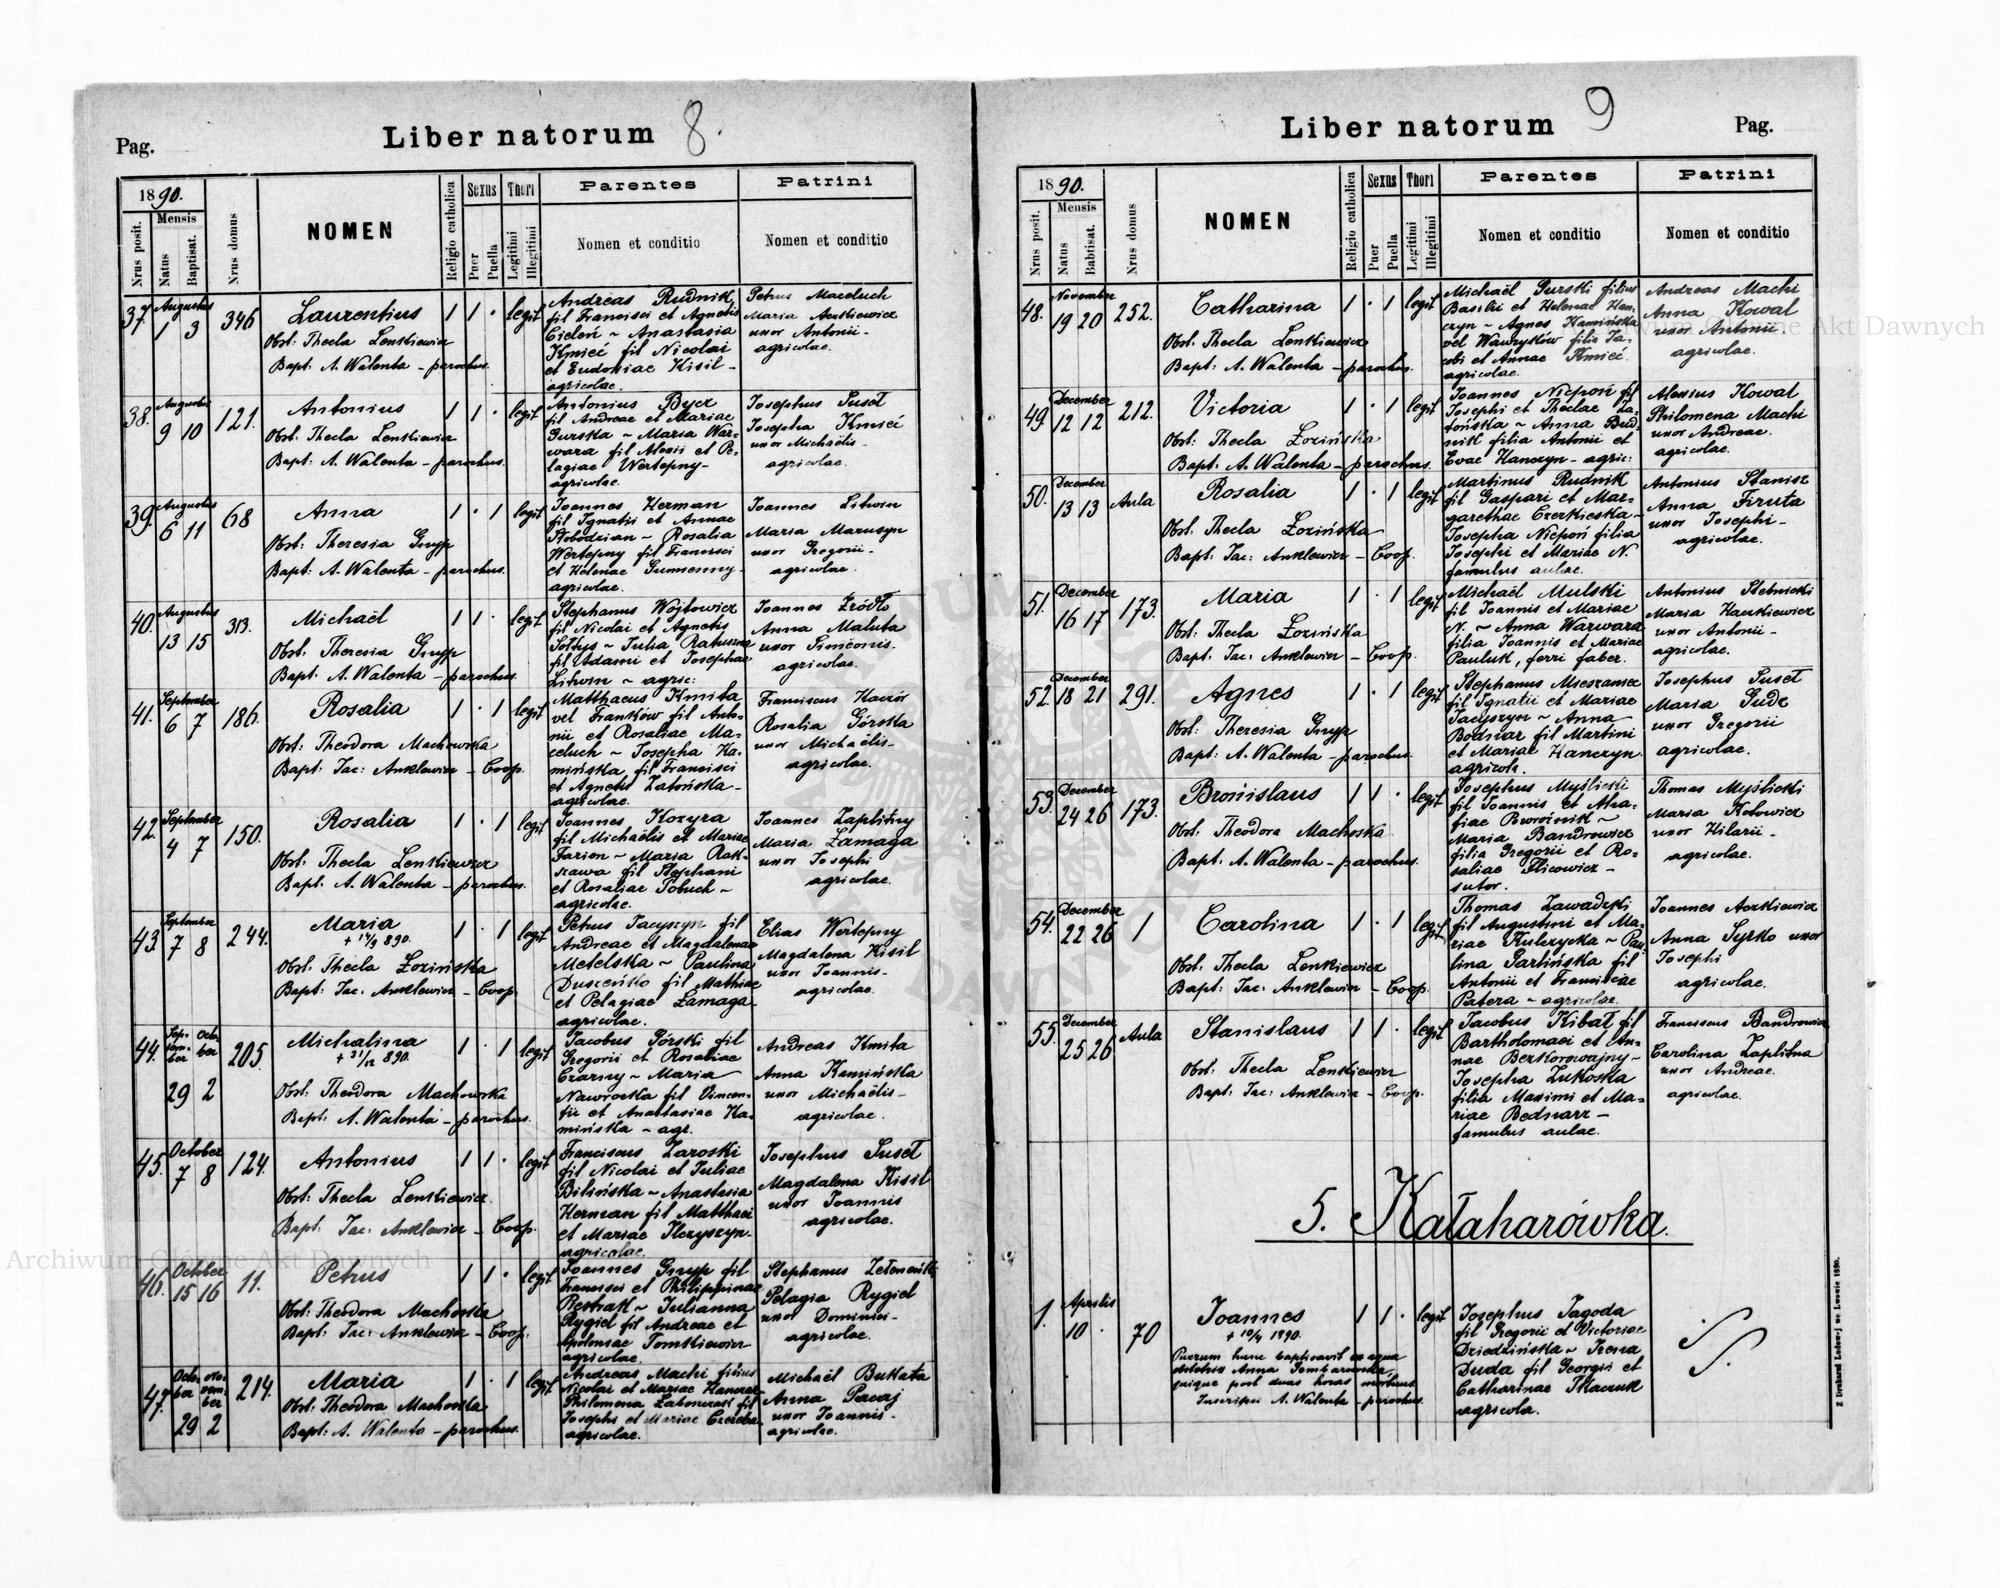 Pag.
Liber natorum
8.
1890.
Nrus posit.
Mensis
Natus
Baptisat.
Nrus domus
NOMEN
Religio catholica
Sexus
Puer
Puella
Thori
Legitimi
Illegitimi
Parentes
Nomen et conditio
Patrini
Nomen et conditio
37.
Augustus
1 3
346
Laurentius
Obst: Thecla Lenkiewicz
Bapt: A. Walenta – parochus.
1 1 · legit
Andreas Rudnik,
fil Francisci et Agnetis
Cieleń ~ Anastasia
Kmieć fil Nicolai
et Eudoxiae Kisil –
agricolae.
Petrus Maceluch
Maria Aczkiewicz
uxor Antonii –
agricolae.
38.
Augustus
9 10
121.
Antonius
Obst: Thecla Lenkiewicz
Bapt: A. Walenta – parochus.
1 1 · legit
Antonius Bycz
fil Andreae et Mariae
Gurska ~ Maria War-
wara fil Alexii et Pe-
lagiae Wertepny –
agricolae.
Josephus Suset
Josepha Kmieć
uxor Michaëlis –
agricolae.
39.
Augustus
6 11
68
Anna
Obst: Theresia Gnyp
Bapt: A. Walenta – parochus.
1 · 1 legit
Joannes Herman
fil Ignatii et Annae
Słobodzian ~ Rosalia
Wertepny fil Francisci
et Helenae Gumienny –
agricolae.
Joannes Litwin
Maria Marusyn
uxor Gregorii –
agricolae.
40.
Augustus
13 15
313.
Michaël
Obst: Theresia Gnyp
Bapt: A. Walenta – parochus.
1 1 · legit
Stephanus Wojtowicz
fil Nicolai et Agnetis
Sołtys ~ Julia Ratuszna
fil Adami et Josephae
Litwin ~ agric:
Joannes Źródło
Anna Maluta
uxor Simeonis.
agricolae.
41.
September
6 7
186.
Rosalia
Obst: Theodora Machowska
Bapt: Jac: Anklewicz – Coop.
1 · 1 legit
Matthaeus Kmita
vel Franków fil Anto-
nii et Rosaliae Ma-
celuch ~ Josepha Ka-
mińska fil Francisci
et Agnetis Zatońska –
agricolae.
Franciscus Haczór
Rosalia Górska
uxor Michaëlis –
agricolae.
42.
September
4 7
150.
Rosalia
Obst: Thecla Lenkiewicz
Bapt: A. Walenta – parochus.
1 · 1 legit
Joannes Kozyra
fil Michaëlis et Mariae
Farion ~ Maria Rak-
szawa fil Stephani
et Rosaliae Tobuch ~
agricolae.
Joannes Zaplitny
Maria Łamaga
uxor Josephi
agricolae.
43
September
7 8
244.
Maria
+ 14/9 890.
Obst: Thecla Łozińska
Bapt: Jac: Anklewicz – Coop.
1 · 1 legit
Petrus Jacyszyn fil
Andreae et Magdalenae
Metelska ~ Paulina
Duszeńko fil Mathiae
et Pelagiae Łamaga –
agricolae.
Elias Wertepny
Magdalena Kisil
uxor Joannis –
agricolae.
44.
Sep-
tem-
ber
Octo-
ber
29 2
205.
Michalina
+ 31/12 890.
Obst: Theodora Machowska
Bapt: A. Walenta – parochus.
1 · 1 legit
Jacobus Górski fil
Gregorii et Rosaliae
Czarny ~ Maria
Nawrocka fil Vincen-
tii et Anastasiae Ka-
mińska ~ agr.
Andreas Kmita
Anna Kamińska
uxor Michaëlis –
agricolae.
45.
October
7 8
124.
Antonius
Obst: Thecla Lenkiewicz
Bapt: Jac: Anklewicz – Coop.
1 1 · legit
Franciscus Zaroski
fil Nicolai et Juliae
Bilińska ~ Anastasia
Herman fil Matthaei
et Mariae Ilczyszyn –
agricolae.
Josephus Suset
Magdalena Kisil
uxor Joannis
agricolae.
46.
October
15 16
11.
Petrus
Obst: Theodora Machoska
Bapt: Jac: Anklewicz – Coop.
1 1 · legit
Joannes Gnyp fil
Francisci et Philippinae
Restrak ~ Julianna
Rygiel fil Andreae et
Apoloniae Tomkiewicz
agricolae.
Stephanus
Pelagia Rygiel
uxor Dominici –
agricolae.
47.
Octo-
ber
No-
vem-
ber
29 2
214.
Maria
Obst: Theodora Machoska
Bapt: A. Walenta – parochus.
1 · 1 legit
Andreas Machi filius
Nicolai et Mariae Hanczar
Philomena fil
Josephi et Mariae Czereba
agricolae.
Michaël Bukata
Anna Pacaj
uxor Joannis –
agricolae.
Liber natorum
9
Pag.
1890.
Nrus posit.
Mensis
Natus
Babtisat.
Nrus domus
NOMEN
Religio catholica
Sexus
Puer
Puella
Thori
Legitimi
Illegitimi
Parentes
Nomen et conditio
Patrini
Nomen et conditio
48.
November
19 20
252.
Catharina
Obst: Thecla Lenkiewicz
Bapt: A. Walenta – parochus.
1 · 1 legit
Michaël Gurski filius
Basilii et Helenae Han-
czyn ~ Agnes Kamińska
vel Wawryków filia Ja-
cobi et Annae Kmieć.
agricolae.
Andreas Machi
Anna Kowal
uxor Antonii
agricolae.
49.
December
12 12
212.
Victoria
Obst: Thecla Łozińska
Bapt: A. Walenta – parochus.
1 · 1 legit
Joannes Niepoń fil
Josephi et Theclae Za-
tońska ~ Anna Bud-
nik filia Antonii et
Evae Hanczyn – agric:
Alexius Kowal
Philomena Machi
uxor Andreae.
agricolae.
50.
December
13 13
Aula
Rosalia
Obst: Thecla Łozińska
Bapt: Jac: Anklewicz – Coop.
1 · 1 legit
Martinus Rudnik
fil Gaspari et Mar-
garethae Czerkieska –
Josepha Niepoń filia
Josephi et Mariae N.
famulus aulae.
Antonius Stanisz
Anna Firuta
uxor Josephi –
agricolae.
51.
December
16 17
173.
Maria
Obst: Thecla Łozińska
Bapt: Jac: Anklewicz – Coop.
1 · 1 legit
Michaël Mulski
fil Joannis et Mariae
N. ~ Anna Warwara
filia Joannis et Mariae
Pauluk, ferri faber.
Antonius Stetnicki
Maria Hackiewicz
uxor Antonii –
agricolae.
52.
December
18 21
291.
Agnes
Obst: Theresia Gnyp
Bapt: A. Walenta – parochus.
1 · 1 legit
Stephanus Mieszaniec
fil Ignatii et Mariae
Jacyszyn ~ Anna
Bodnar fil Martini
et Mariae Hanczyn.
agricola.
Josephus Suset
Maria Gudz
uxor Gregorii
agricolae.
53.
December
24 26
173.
Bronislaus
Obst: Theodora Machoska
Bapt: A. Walenta – parochus.
1 1 · legit
Josephus Myślicki
fil Joannis et Aga-
fiae Powroźnik ~
Maria Bandrowicz
filia Gregorii et Ro-
saliae Flicowicz –
sutor.
Thomas Myślicki
Maria Kotowicz
uxor Hilarii –
agricolae.
54.
December
22 26
1
Carolina
Obst: Thecla Lenkiewicz
Bapt: Jac: Anklewicz – Coop.
1 · 1 legit
Thomas Zawadzki
fil Augustini et Ma-
riae Kulczycka ~ Pau-
lina Gartińska fil
Antonii et Franciscae
Patera ~ agricolae.
Joannes Aczkiewicz
Anna Syrko uxor
Josephi
agricolae.
55.
December
25 26
Aula
Stanislaus
Obst: Thecla Lenkiewicz
Bapt: Jac: Anklewicz – Coop.
1 1 · legit
Jacobus Kibał fil
Bartholomaei et An-
nae Bezkorowajny –
Josepha Żukoska
filia Maximi et Ma-
riae Bednarz –
famulus aulae.
Franciscus Bandrowicz
Carolina Zaplitna
uxor Andreae.
agricolae.
5. Kałaharówka.
1.
Aprilis
10 .
70
Joannes
+ 10/4 1890.
Puerum hunc baptisavit ex aqua
obstetrix Anna
quique post duas horas mortuus
Inscripsi A. Walenta – parochus.
1 1 · legit
Josephus Jagoda
fil Gregorii et Victoriae
Dziedzińska ~ Irena
Duda fil Georgii et
Catharinae Tkaczuk
agricola.
Z Drukarni Ludowej we Lwowie 1890.
Archiwum Główne Akt Dawnych
Archiwum Główne Akt Dawnych